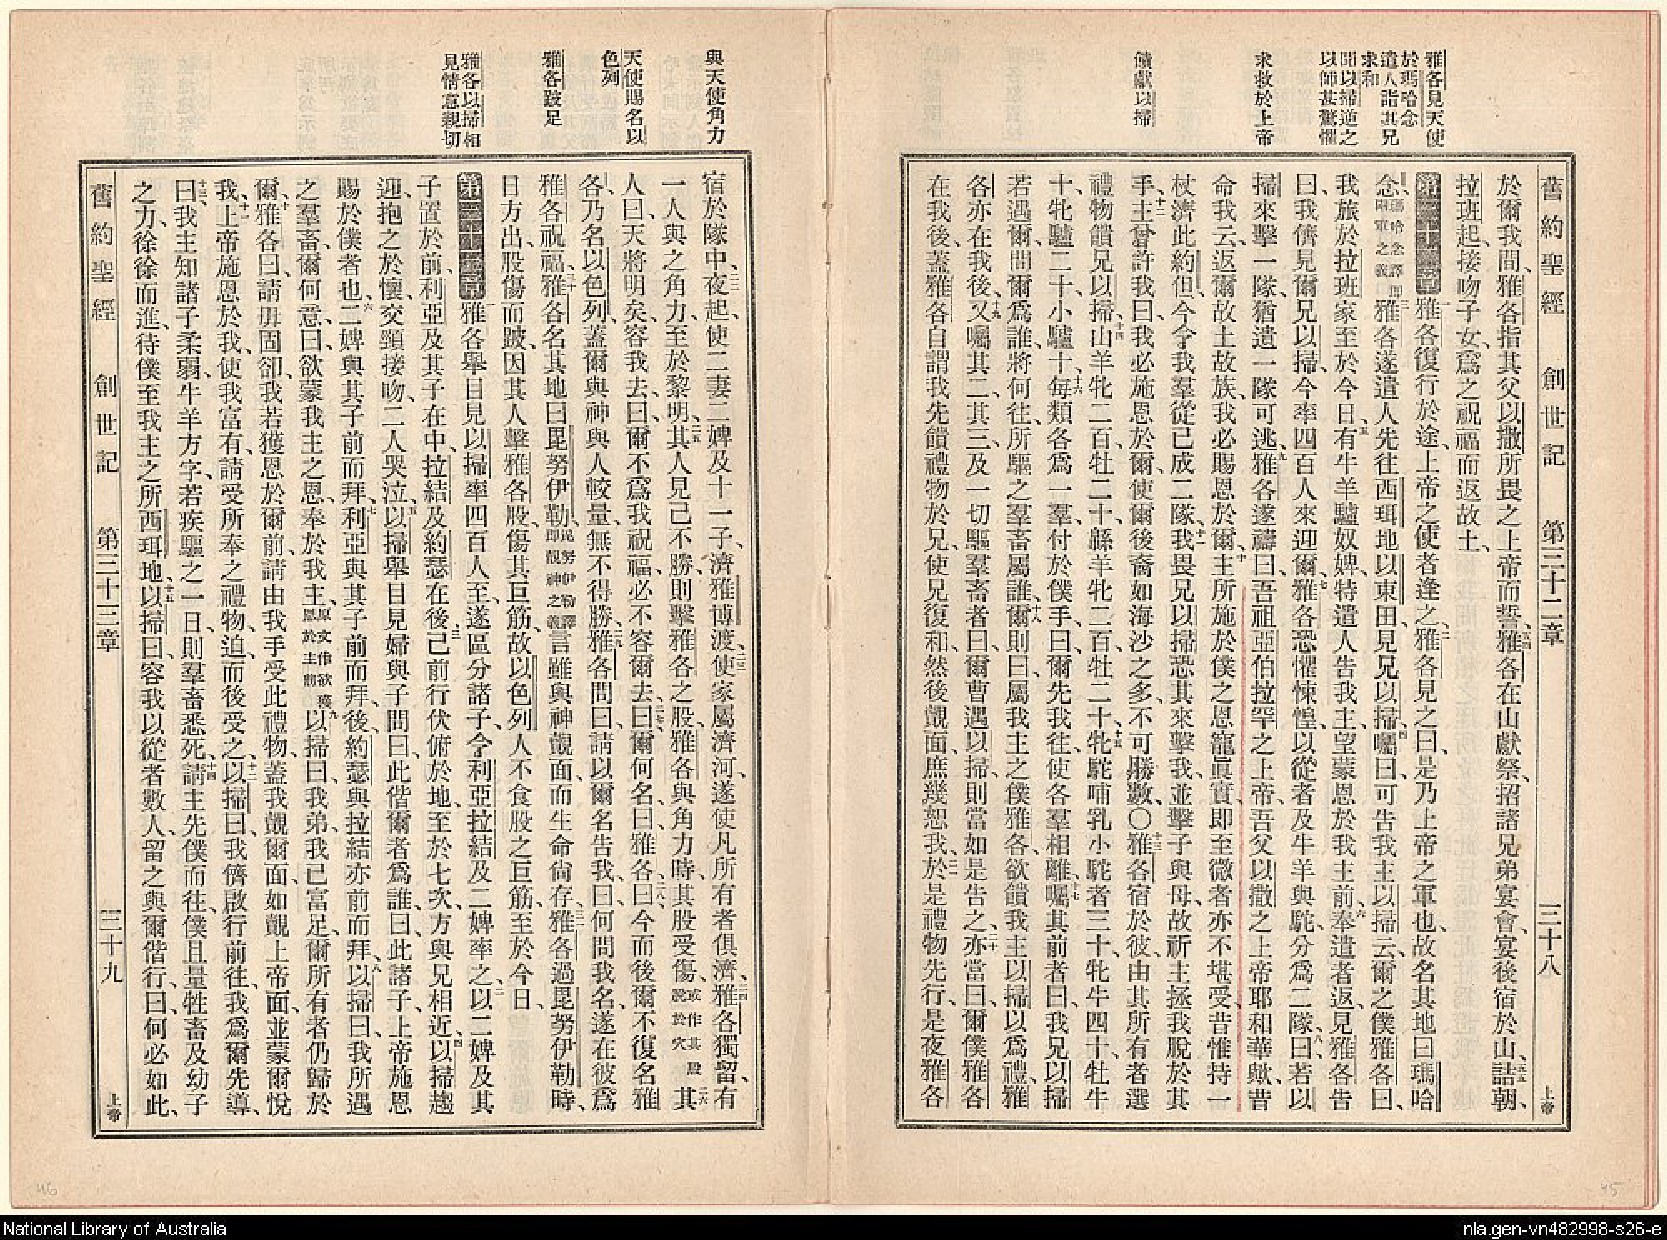 雅各見天使
於瑪哈念
遣人詣其兄
求和
聞以掃逆之
以師甚驚懼
求救於上帝
饋獻以掃
舊約聖經 創世記 第三十二章 三十八 上帝
於爾我間、雅各指其父以撒所畏之上帝而誓、五四雅各在山獻祭、招諸兄弟宴會、宴後宿於山、五五詰朝、
拉班起、接吻子女、爲之祝福而返故土、
第三十二章一雅各復行於途、上帝之使者逢之、二雅各見之曰、是乃上帝之軍也、故名其地曰瑪哈
念、瑪哈念譯即軍之義三雅各遂遣人先往西珥地以東田見兄以掃、四囑曰、可告我主以掃云、爾之僕雅各曰、
我旅於拉班家至於今日、五有牛羊驢奴婢、特遣人告我主、望蒙恩於我主前、六奉遣者返、見雅各告
曰、我儕見爾兄以掃、今率四百人來迎爾、七雅各恐懼悚惶、以從者及牛羊與駝分爲二隊、八曰、若以
掃來擊一隊、猶遺一隊可逃、九雅各遂禱曰、吾祖亞伯拉罕之上帝、吾父以撒之上帝耶和華歟、昔
命我云、返爾故土故族、我必賜恩於爾、十主所施於僕之恩寵眞實、即至微者亦不堪受、昔惟持一
杖濟此約但、今我羣從已成二隊、十一我畏兄以掃、恐其來擊我、並擊子與母、故祈主拯我脫於其
手、十二主曾許我曰、我必施恩於爾、使爾後裔如海沙之多、不可勝數、〇十三雅各宿於彼、由其所有者選
禮物饋兄以掃、十四山羊牝二百牡二十、緜羊牝二百牡二十、十五牝駝哺乳小駝者三十、牝牛四十、牡牛
十、牝驢二十、小驢十、十六每類各爲一羣、付於僕手、曰、爾先我往、使各羣相離、十七囑其前者曰、我兄以掃
若遇爾、問爾爲誰、將何往、所驅之羣畜屬誰、十八爾則曰、屬我主之僕雅各、欲饋我主以掃以爲禮、雅
各亦在我後、十九又囑其二、其三、及一切驅羣畜者曰、爾曹遇以掃、則當如是告之、二十亦當曰、爾僕雅各
在我後、蓋雅各自謂我先饋禮物於兄、使兄復和、然後覿面、庶幾恕我、二一於是禮物先行、是夜雅各
與天使角力
天使賜名以
色列
雅各跛足
雅各以掃相
見情意親切
宿於隊中、二二夜起、使二妻二婢及十一子、濟雅博渡、二三使家屬濟河、遂使凡所有者俱濟、二四雅各獨留、有
一人與之角力、至於黎明、二五其人見己不勝、則擊雅各之股、雅各與角力時、其股受傷、或作其股脫於穴二六其
人曰、天將明矣、容我去、曰、爾不爲我祝福、必不容爾去、二七曰、爾何名、曰、雅各、二八曰、今而後爾不復名雅
各、乃名以色列、蓋爾與神與人較量、無不得勝、二九雅各問曰、請以爾名告我、曰、何問我名、遂在彼爲
雅各祝福、三十雅各名其地曰毘努伊勒、毘努伊勒譯即覿神之義言雖與神覿面、而生命尙存、三一雅各過毘努伊勒時、
日方出、股傷而跛、三二因其人擊雅各股傷其巨筋、故以色列人不食股之巨筋、至於今日、
第三十三章一雅各舉目見以掃率四百人至、遂區分諸子、令利亞拉結及二婢率之、二以二婢及其
子置於前、利亞及其子在中、拉結及約瑟在後、三己前行、伏俯於地、至於七次、方與兄相近、四以掃趨
迎、抱之於懷、交頸接吻、二人哭泣、五以掃舉目見婦與子、問曰、此偕爾者爲誰、曰、此諸子、上帝施恩
賜於僕者也、六二婢與其子前而拜、七利亞與其子前而拜、後約瑟與拉結亦前而拜、八以掃曰、我所遇
之羣畜、爾何意、曰、欲蒙我主之恩、奉於我主、原文作欲獲恩於主前九以掃曰、我弟、我已富足、爾所有者仍歸於
爾、十雅各曰、請毋固卻、我若獲恩於爾前、請由我手受此禮物、蓋我覿爾面、如覿上帝面、並蒙爾悅
我、十一上帝施恩於我、使我富有、請受所奉之禮物、迫而後受之、十二以掃曰、我儕啟行前往、我爲爾先導、
十三曰、我主知諸子柔弱、牛羊方字、若疾驅之一日、則羣畜悉死、十四請主先僕而往、僕且量牲畜及幼子
之力、徐徐而進、待僕至我主之所西珥地、十五以掃曰、容我以從者數人、留之與爾偕行、曰、何必如此、
舊約聖經 創世記 第三十三章 三十九 上帝
46
45
National Library of Australia
nla.gen-vn482998-s26-e